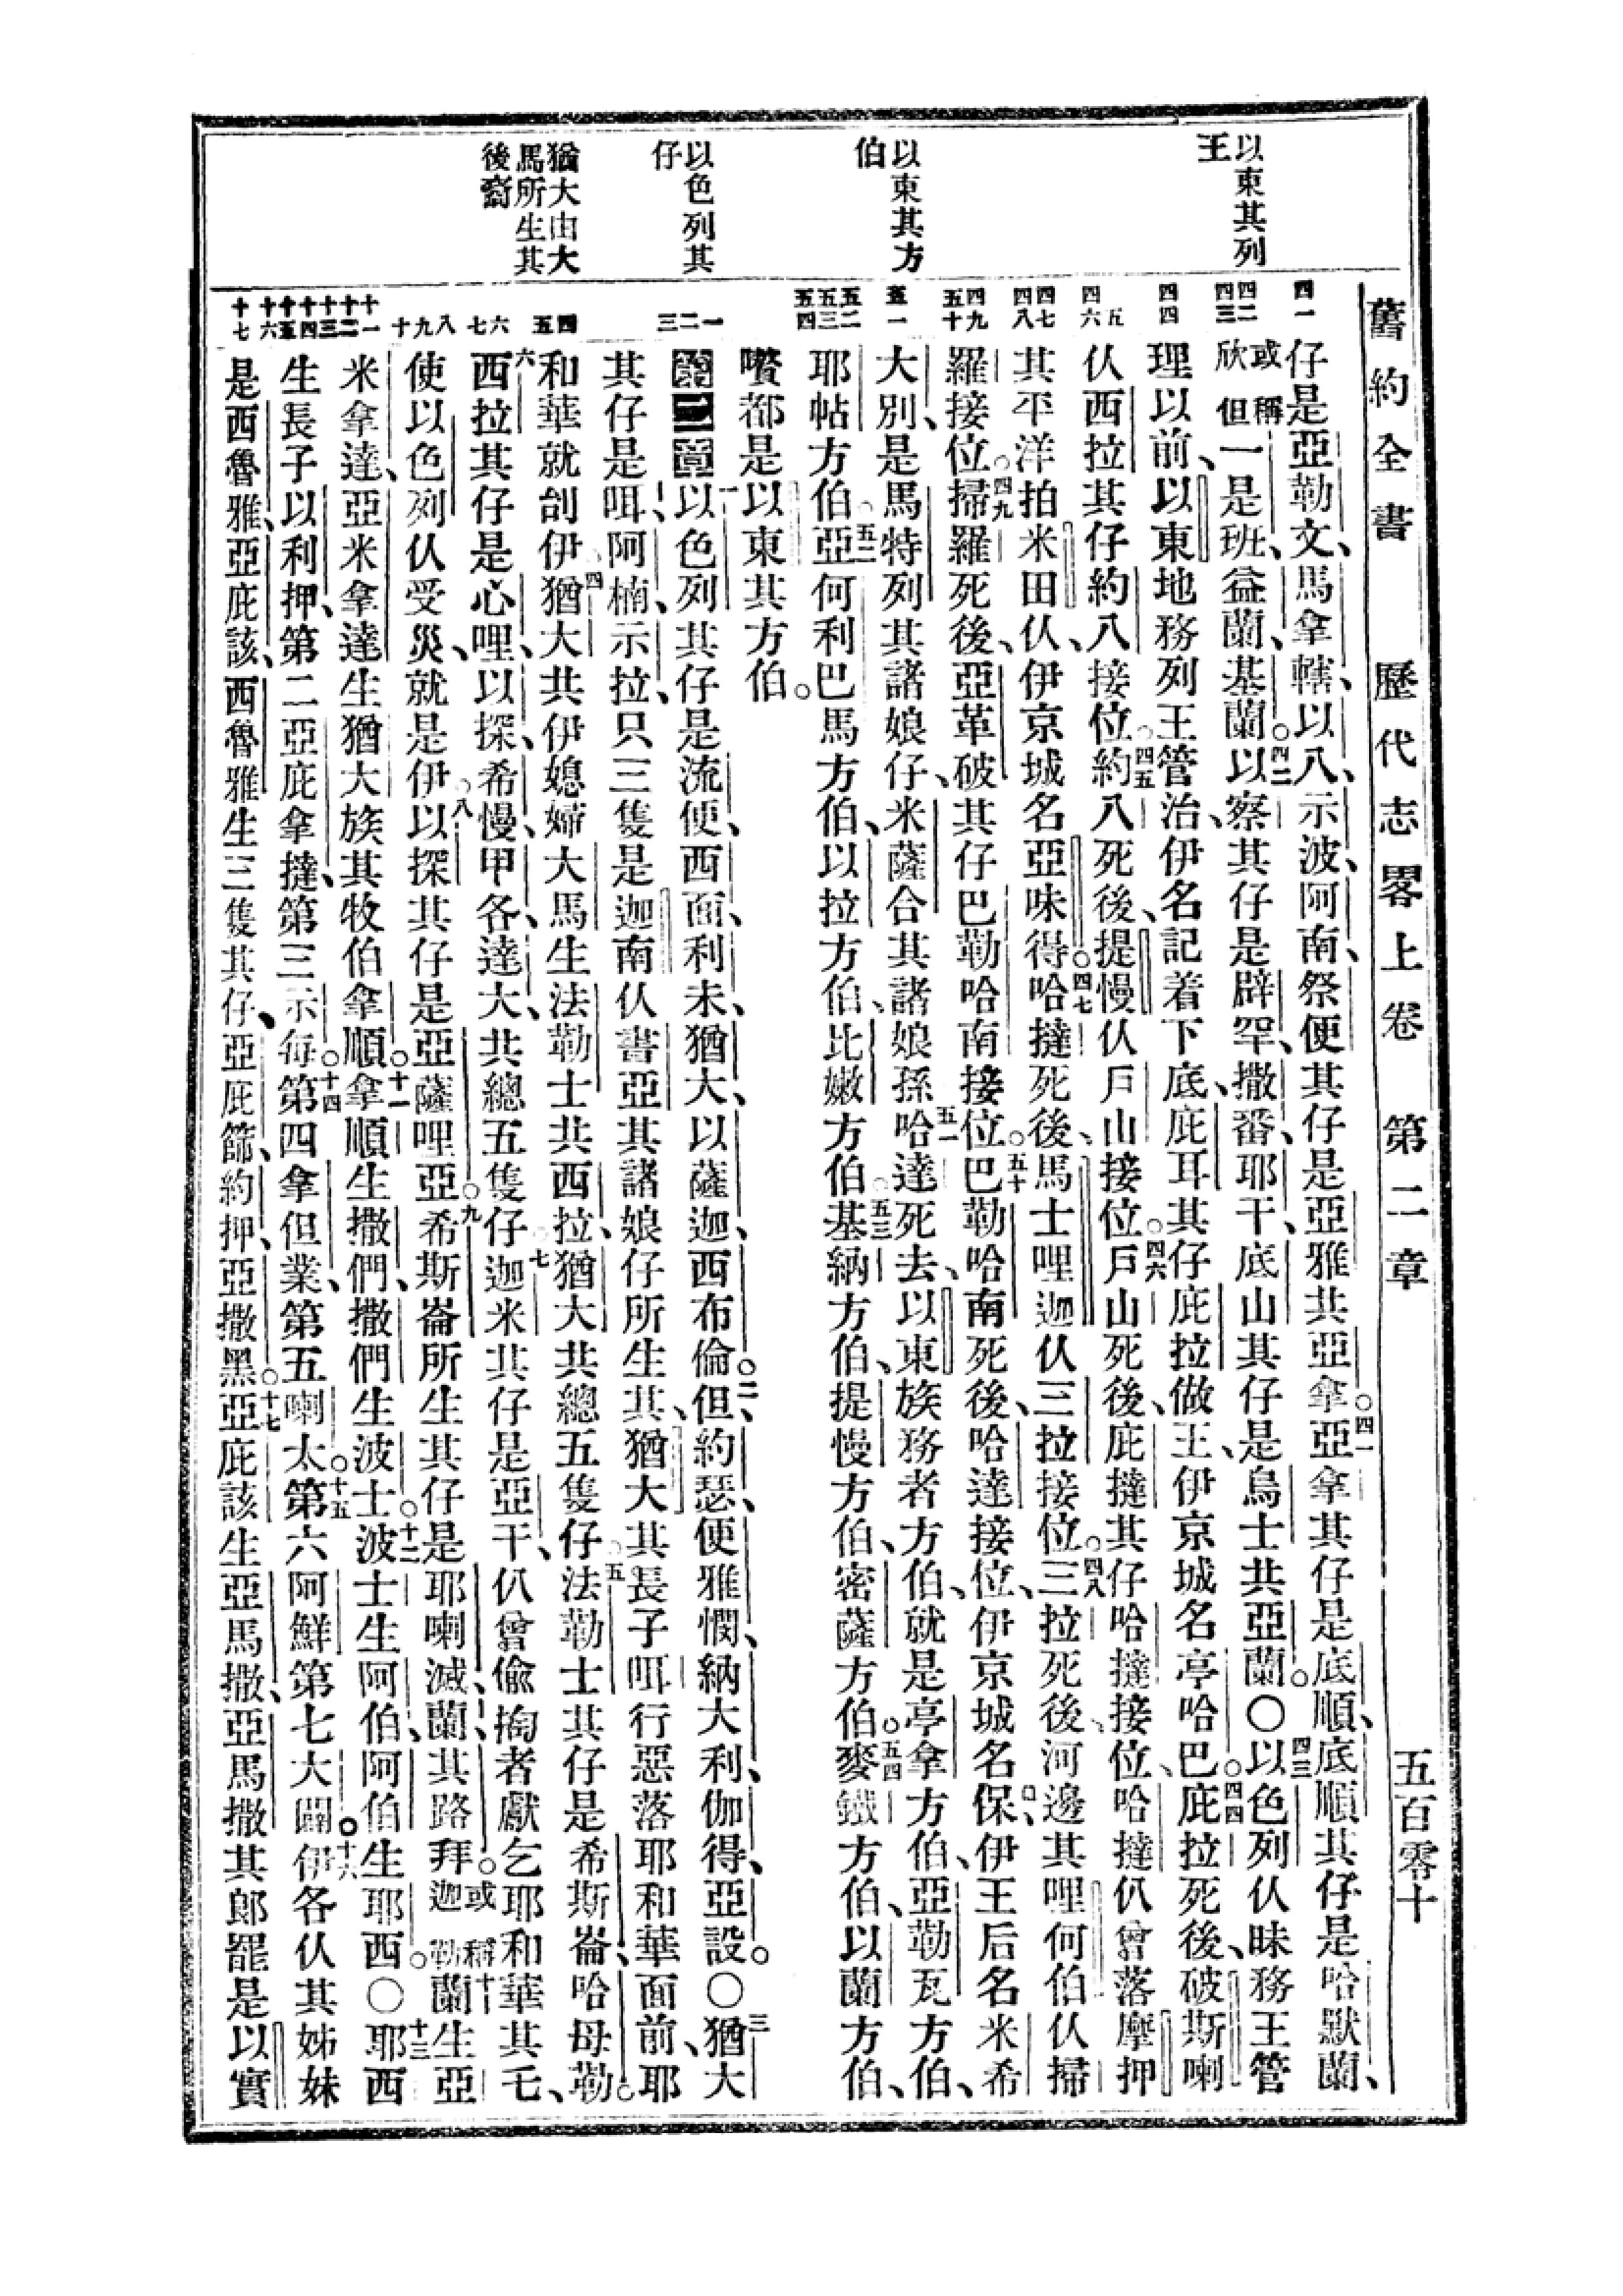 舊約全書 歷代志畧上卷 第二章 五百零十
以東其列
王
以東其方
伯
以色列其
仔
猶大由大
馬所生其
後裔
仔是亞勒文、馬拿轄、以八、示波、阿南、祭便其仔是亞雅共亞拿。四一亞拿其仔是底順、底順其仔是哈默蘭、
或稱欣但一是班、益蘭、基蘭。四二以察其仔是辟罕、撒番、耶干、底山其仔是烏士共亞蘭。〇四三以色列仈昧務王管
理以前、以東地務列王管治、伊名記着下底、庇耳其仔庇拉做王、伊京城名亭哈巴。四四庇拉死後、破斯喇
仈西拉其仔約八接位。四五約八死後、提慢仈戶山接位。四六戶山死後、庇撻其仔哈撻接位、哈撻仈曾落摩押
其平洋拍米田仈、伊京城名亞味得。四七哈撻死後、馬士哩迦仈三拉接位。四八三拉死後、河邊其哩何伯仈掃
羅接位。四九掃羅死後、亞革破其仔巴勒哈南接位。五十巴勒哈南死後、哈達接位、伊京城名保、伊王后名米希
大別、是馬特列其諸娘仔、米薩合其諸娘孫。五一哈達死去、以東族務者方伯、就是亭拿方伯、亞勒瓦方伯、
耶帖方伯。五二亞何利巴馬方伯、以拉方伯、比嫩方伯。五三基納方伯、提慢方伯、密薩方伯。五四麥鐵方伯、以蘭方伯、
囋都是以東其方伯。
第二章 一以色列其仔是流便、西面、利未、猶大、以薩迦、西布倫。二但、約瑟、便雅憫、納大利、伽得、亞設。〇三猶大
其仔是咡、阿楠、示拉、只三隻是迦南仈書亞其諸娘仔所生其、猶大其長子咡行惡落耶和華面前、耶
和華就刣伊。四猶大共伊媳婦大馬生法勒士共西拉、猶大共總五隻仔。五法勒士其仔是希斯崙、哈母勒。
六西拉其仔是心哩、以探、希慢、甲各、達大、共總五隻仔。七迦米其仔是亞干、仈曾偷掏者獻乞耶和華其乇、
使以色列仈受災、就是伊。八以探其仔是亞薩哩亞。九希斯崙所生其仔是耶喇滅、蘭、其路拜。或稱迦勒十蘭生亞
米拿達、亞米拿達生猶大族其牧伯拿順。十一拿順生撒們、撒們生波士。十二波士生阿伯、阿伯生耶西。〇十三耶西
生長子以利押、第二亞庇拿撻、第三示每。十四第四拿但業、第五喇太。十五第六阿鮮、第七大闢。十六伊各仈其姊妹
是西魯雅、亞庇該、西魯雅生三隻其仔、亞庇篩、約押、亞撒黑。十七亞庇該生亞馬撒、亞馬撒其郎罷是以實